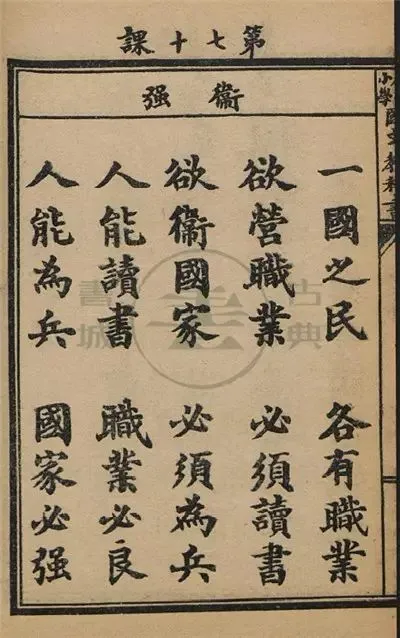 第七十課
小學國文教科書
衞强
一國之民 各有職業
欲營職業 必須讀書
欲衞國家 必須為兵
人能讀書 職業必良
人能為兵 國家必强
古典
書城